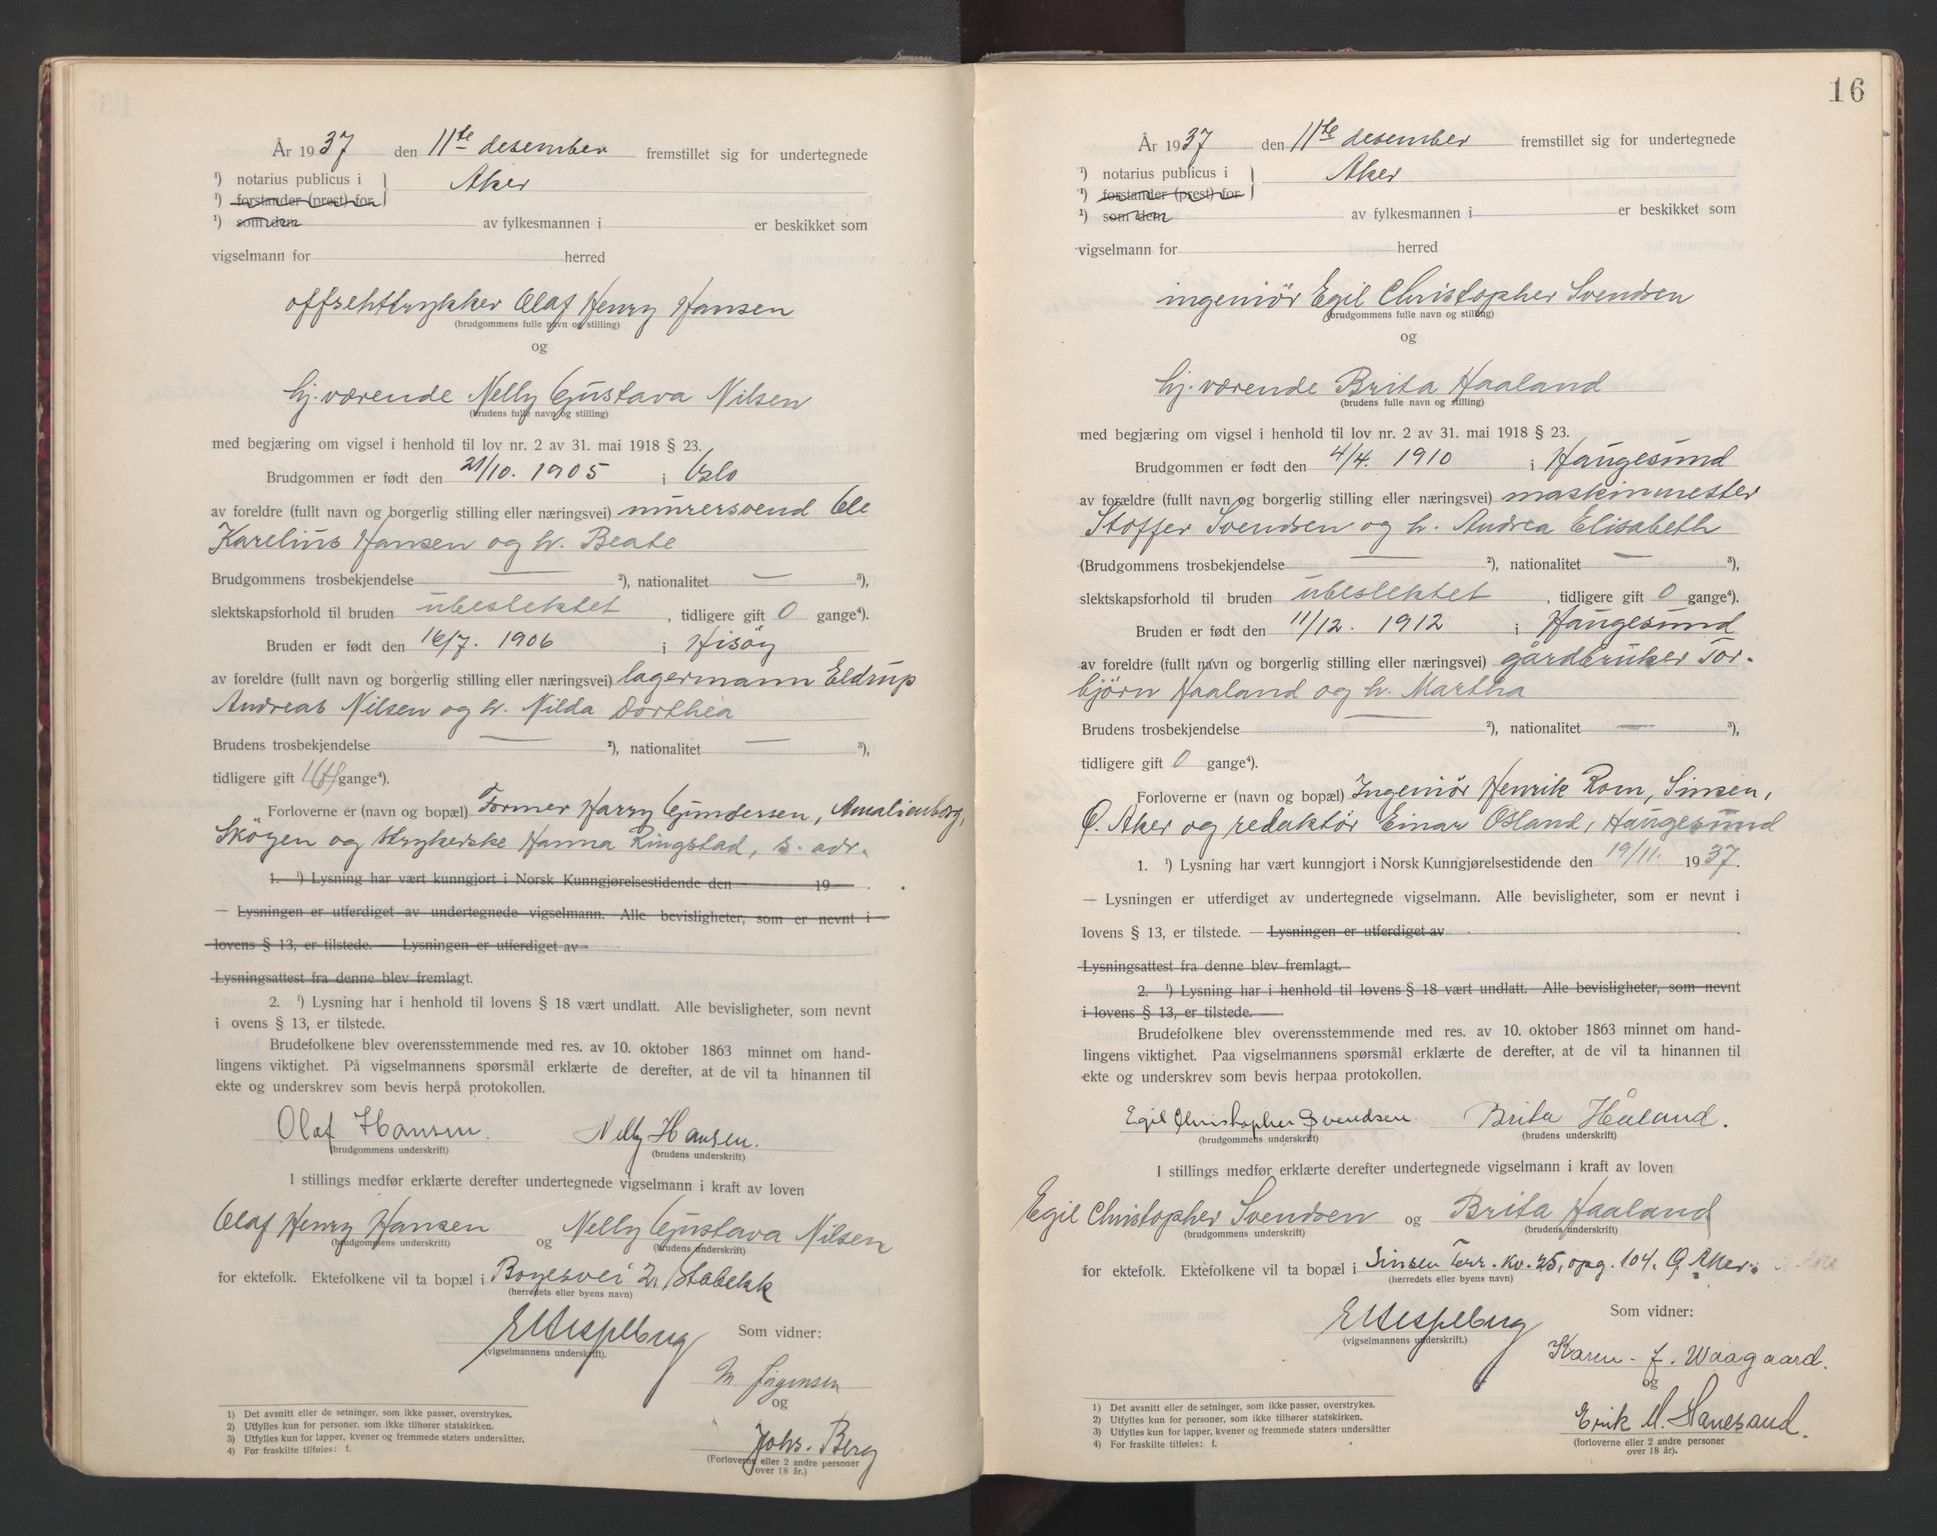 År 1937 den 11te desember fremstillet sig for undertegnede
¹) notarius publicus i } Aker
¹) forstander (prest) for
¹) som dem av fylkesmannen i er beskikket som
vigselmann for herred
offsehttrykker Olaf Henry Hansen
(brudgommens fulle navn og stilling)
og
hj. værende Nelly Gustava Nilsen
(brudens fulle navn og stilling)
med begjæring om vigsel i henhold til lov nr. 2 av 31. mai 1918 § 23.
Brudgommen er født den 21/10. 1905 i Oslo
av foreldre (fullt navn og borgerlig stilling eller næringsvei) murersvend Ole
Karelius Hansen og h. Beate
Brudgommens trosbekjendelse — ²), nationalitet — ³),
slektskapsforhold til bruden ubeslektet, tidligere gift 0 gange⁴).
Bruden er født den 16/7. 1906 i Hisöy
av foreldre (fullt navn og borgerlig stilling eller næringsvei) lagermann Eldrup
Andreas Nilsen og h. Nilda Dorthea
Brudens trosbekjendelse — ²), nationalitet — ³),
tidligere gift 1(f) gange⁴).
Forloverne er (navn og bopæl) Former Harry Gundersen, Amalienborg,
Skøyen og strykerske Hanna Ringstad, s. adr.
1. ¹) Lysning har vært kunngjort i Norsk Kunngjørelsestidende den 19 .
— Lysningen er utferdiget av undertegnede vigselmann. Alle bevisligheter, som er nevnt i
lovens § 13, er tilstede. — Lysningen er utferdiget av
Lysningsattest fra denne blev fremlagt.
2. ¹) Lysning har i henhold til lovens § 18 vært undlatt. Alle bevisligheter, som nevnt
i ovens § 13, er tilstede.
Brudefolkene blev overensstemmende med res. av 10. oktober 1863 minnet om hand-
lingens viktighet. På vigselmannens spørsmål erklærte de derefter, at de vil ta hinannen til
ekte og underskrev som bevis herpå protokollen.
Olaf Hansen. Nelly Hansen.
(brudgommens underskrift) (brudens underskrift)
I stillings medfør erklærte derefter undertegnede vigselmann i kraft av loven
Olaf Henry Hansen og Nelly Gustava Nilsen
(brudgommens underskrift) (brudens underskrift)
for ektefolk. Ektefolkene vil ta bopæl i Boyesvei 2, Stabekk
(herredets eller byens navn)
Som vidner:
(vigselmannens underskrift).
M Jörgensen
og
Johs. Berg
(Forloverne eller 2 andre personer
over 18 år.)
1) Det avsnitt eller de setninger, som ikke passer, overstrykes.
2) Utfylles kun for personer, som ikke tilhører statskirken.
3) Utfylles kun for lapper, kvener og fremmede staters undersåtter.
4) For fraskilte tilføies: f.
16
År 1937 den 11te desember fremstillet sig for undertegnede
¹) notarius publicus i } Aker
¹) forstander (prest) for
¹) som dem av fylkesmannen i er beskikket som
vigselmann for herred
ingeniör Egil Christopher Svendsen
(brudgommens fulle navn og stilling)
og
hj. værende Brita Haaland
(brudens fulle navn og stilling)
med begjæring om vigsel i henhold til lov nr. 2 av 31. mai 1918 § 23.
Brudgommen er født den 4/4. 1910 i Haugesund
av forældre (fullt navn og borgerlig stilling eller næringsvei) maskinmester
Stoffer Svendsen og h. Andrea Elisabeth
(Brudgommens trosbekjendelse — ²), nationalitet — ³),
slektskapsforhold til bruden ubeslektet, tidligere gift 0 gange⁴).
Bruden er født den 11/12. 1912 i Haugesund
av foreldre (fullt navn og borgerlig stilling eller næringsvei) gårdbruker Tor-
björn Haaland og h. Martha
Brudens trosbekjendelse — ²), nationalitet — ³),
tidligere gift 0 gange⁴).
Forloverne er (navn og bopæl) Ingeniör Henrik Rom, Sinsen,
Ö. Aker og redaktör Einar Osland, Haugesund
1. ¹) Lysning har vært kunngjort i Norsk Kunngjørelsestidende den 19/11. 1937.
— Lysningen er utferdiget av undertegnede vigselmann. Alle bevisligheter, som er nevnt i
lovens § 13, er tilstede. — Lysningen er utferdiget av
Lysningsattest fra denne blev fremlagt.
2. ¹) Lysning har i henhold til lovens § 18 vært undlatt. Alle bevisligheter, som nevnt
i lovens § 13, er tilstede.
Brudefolkene blev overensstemmende med res. av 10. oktober 1863 minnet om hand-
lingens viktighet. Paa vigselmannens spørsmål erklærte de derefter, at de vil ta hinannen til
ekte og underskrev som bevis herpaa protokollen.
Egil Christopher Svendsen. Brita Håland.
(brudgommens underskrift) (brudens underskrift)
I stillings medfør erklærte derefter undertegnede vigselmann i kraft av loven
Egil Christopher Svendsen og Brita Haaland
(brudgommens underskrift) (brudens underskrift)
for ektefolk. Ektefolkene vil ta bopæl i Sinsen Terr. kv. 25, opg. 104. Ö. Aker.
(herredets eller byens navn)
Som vidner:
(vigselmannens underskrift.)
Karen F. Waagaard.
og
Erik M. Hanesand.
(forloverne eller 2 andre personer
over 18 år).
1) Det avsnitt eller de setninger, som ikke passer, overstrykes.
2) Utfylles kun for personer, som ikke tilhører statskirken.
3) Utfylles kun for lapper, kvener og fremmede staters undersåtter
4) For fraskilte tilføies: f.